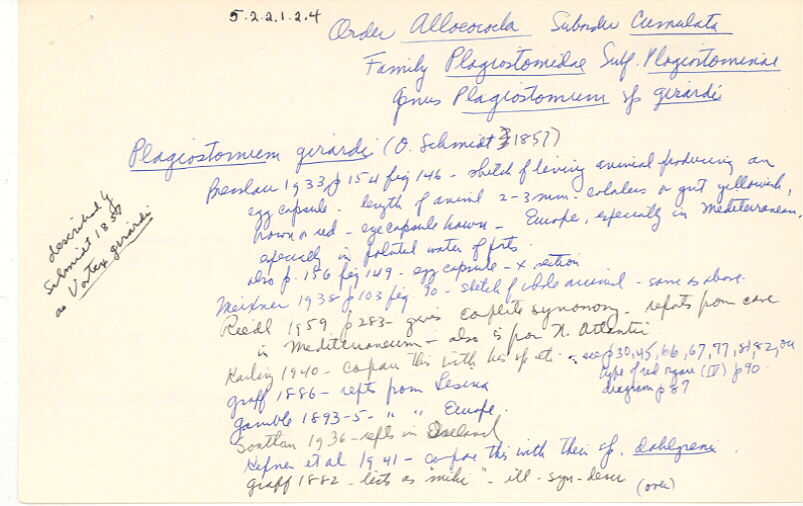 5.2.2.1.2.4
Order Alloeocoela Suborder Cumulata
Family Plagiostomidae Subf. Plagiostominae
genus Plagiostomum sp girardi
Plagiostomum girardi (O. Schmidt 1857)
described by
Schmidt 1857
as Vortex girardi
Bresslau 1933 p 154 fig 146 - sketch of living animal producing an
egg capsule. length of animal 2-3 mm. colorless or gut yellowish,
brown or red - eye capsule brown - Europe, especially in Mediterranean,
especially in polluted water of ports.
also p. 156 fig 149 - egg capsule - x section
Meixner 1938 p 103 fig. 90 - sketch of whole animal - same as above.
Riedl 1959 p 283 - gives complete synonomy - reports from cave
in Mediterraneum - also is from N. Atlantic
Karling 1940 - compare this with his sp etc - see p 30, 45, 66, 67, 77, 81, 82,
type of red organ (IV) p 90.
diagram p 89
graff 1886 - repts from Lesina
gamble 1893-5 - " " Europe.
Southern 1936 - repts in Ireland
Hefner et al 1941 - compare this with their sp. dahlgreni.
graff 1882 - lists as "mihi" - ill - syn - descr
(over)